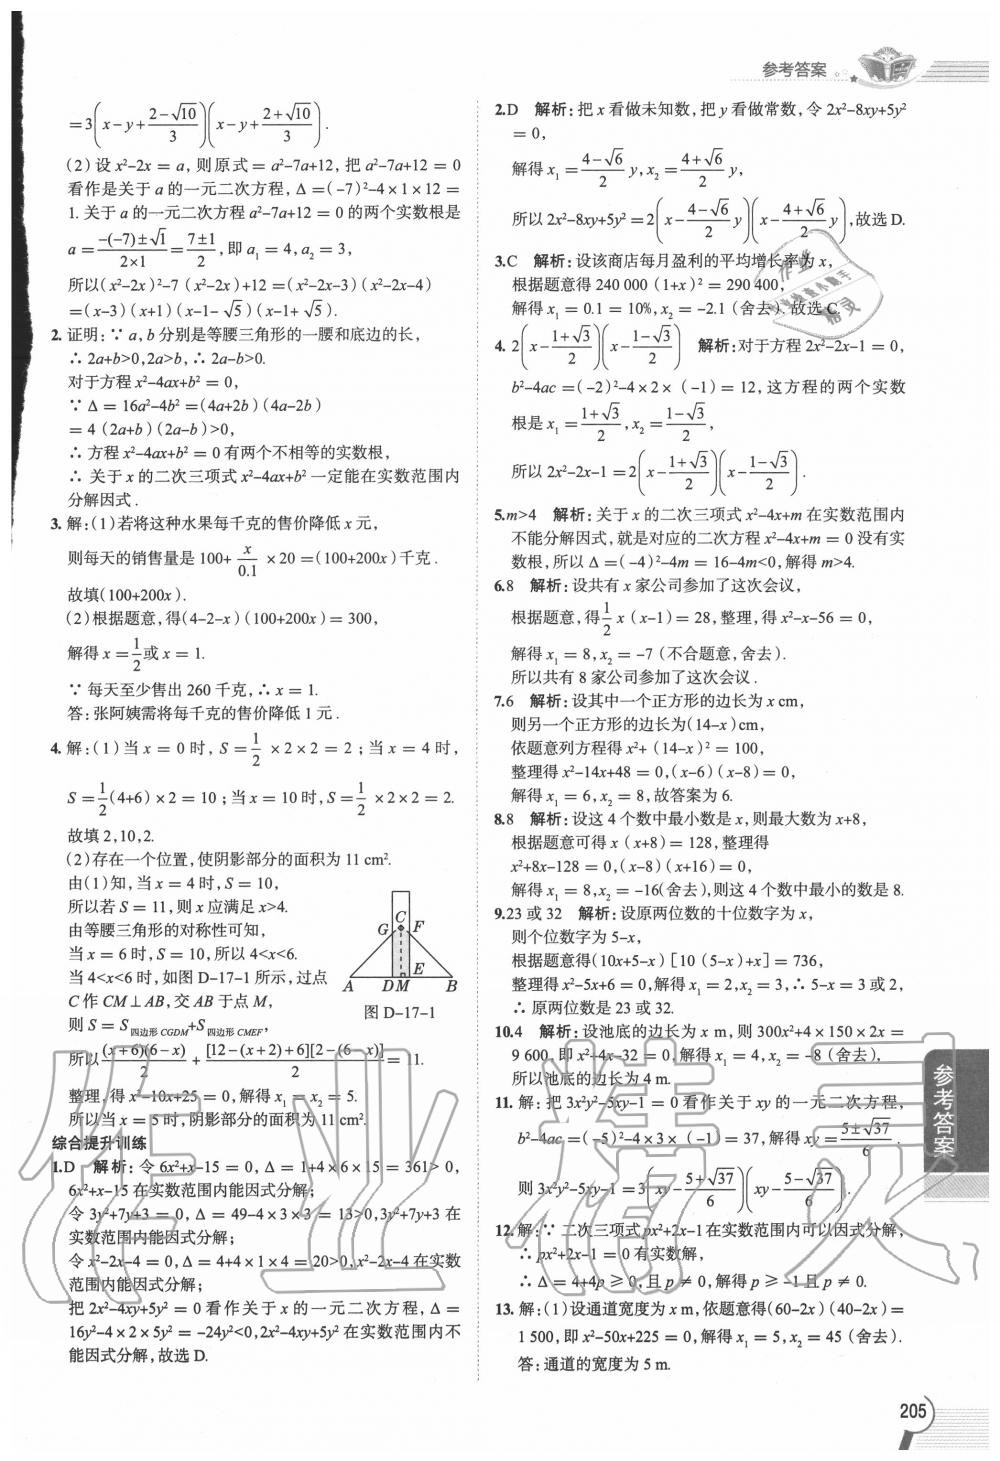 参考答案
=3(x-y+(2-√10)/3)(x-y+(2+√10)/3).
(2)设x²-2x=a,则原式=a²-7a+12,把a²-7a+12=0
看作是关于a的一元二次方程,Δ=(-7)²-4×1×12=
1.关于a的一元二次方程a²-7a+12=0的两个实数根是
a=(-(-7)±√1)/(2×1)=(7±1)/2,即a₁=4,a₂=3,
所以(x²-2x)²-7(x²-2x)+12=(x²-2x-3)(x²-2x-4)
=(x-3)(x+1)(x-1-√5)(x-1+√5).
2.证明:∵a,b分别是等腰三角形的一腰和底边的长,
∴2a+b>0,2a>b,∴2a-b>0.
对于方程x²-4ax+b²=0,
∵Δ=16a²-4b²=(4a+2b)(4a-2b)
=4(2a+b)(2a-b)>0,
∴方程x²-4ax+b²=0有两个不相等的实数根,
∴关于x的二次三项式x²-4ax+b²一定能在实数范围内
分解因式.
3.解:(1)若将这种水果每千克的售价降低x元,
则每天的销售量是100+x/0.1×20=(100+200x)千克.
故填(100+200x).
(2)根据题意,得(4-2-x)(100+200x)=300,
解得x=1/2或x=1.
∵每天至少售出260千克,∴x=1.
答:张阿姨需将每千克的售价降低1元.
4.解:(1)当x=0时,S=1/2×2×2=2;当x=4时,
S=1/2(4+6)×2=10;当x=10时,S=1/2×2×2=2.
故填2,10,2.
(2)存在一个位置,使阴影部分的面积为11 cm².
由(1)知,当x=4时,S=10,
所以若S=11,则x应满足x>4.
由等腰三角形的对称性可知,
当x=6时,S=10,所以4<x<6.
当4<x<6时,如图D-17-1所示,过点
C作CM⊥AB,交AB于点M,
则S=S四边形CGDM+S四边形CMEF,
G C F
E
A D M B
图D-17-1
所以(x+6)(6-x)/2+[12-(x+2)+6][2-(6-x)]/2=11.
整理,得x²-10x+25=0,解得x₁=x₂=5.
所以当x=5时,阴影部分的面积为11 cm².
综合提升训练
1.D 解析:令6x²+x-15=0,Δ=1+4×6×15=361>0,
6x²+x-15在实数范围内能因式分解;
令3y²+7y+3=0,Δ=49-4×3×3=13>0,3y²+7y+3在
实数范围内能因式分解;
令x²-2x-4=0,Δ=4+4×1×4=20>0,x²-2x-4在实数
范围内能因式分解;
把2x²-4xy+5y²=0看作关于x的一元二次方程,Δ=
16y²-4×2×5y²=-24y²<0,2x²-4xy+5y²在实数范围内不
能因式分解,故选D.
2.D 解析:把x看做未知数,把y看做常数,令2x²-8xy+5y²
=0,
解得x₁=(4-√6)/2 y,x₂=(4+√6)/2 y,
所以2x²-8xy+5y²=2(x-(4-√6)/2 y)(x-(4+√6)/2 y),故选D.
3.C 解析:设该商店每月盈利的平均增长率为x,
根据题意得240 000(1+x)²=290 400,
解得x₁=0.1=10%,x₂=-2.1(舍去).故选C.
4.2(x-(1+√3)/2)(x-(1-√3)/2) 解析:对于方程2x²-2x-1=0,
b²-4ac=(-2)²-4×2×(-1)=12,这方程的两个实数
根是x₁=(1+√3)/2,x₂=(1-√3)/2,
所以2x²-2x-1=2(x-(1+√3)/2)(x-(1-√3)/2).
5.m>4 解析:关于x的二次三项式x²-4x+m在实数范围内
不能分解因式,就是对应的二次方程x²-4x+m=0没有实
数根,所以Δ=(-4)²-4m=16-4m<0,解得m>4.
6.8 解析:设共有x家公司参加了这次会议,
根据题意,得1/2x(x-1)=28,整理,得x²-x-56=0,
解得x₁=8,x₂=-7(不合题意,舍去).
所以共有8家公司参加了这次会议.
7.6 解析:设其中一个正方形的边长为x cm,
则另一个正方形的边长为(14-x)cm,
依题意列方程得x²+(14-x)²=100,
整理得x²-14x+48=0,(x-6)(x-8)=0,
解得x₁=6,x₂=8,故答案为6.
8.8 解析:设这4个数中最小数是x,则最大数为x+8,
根据题意可得x(x+8)=128,整理得
x²+8x-128=0,(x-8)(x+16)=0,
解得x₁=8,x₂=-16(舍去),则这4个数中最小的数是8.
9.23或32 解析:设原两位数的十位数字为x,
则个位数字为5-x,
根据题意得(10x+5-x)[10(5-x)+x]=736,
整理得x²-5x+6=0,解得x₁=2,x₂=3,∴5-x=3或2,
∴原两位数是23或32.
10.4 解析:设池底的边长为x m,则300x²+4×150×2x=
9 600,即x²+4x-32=0,解得x₁=4,x₂=-8(舍去),
所以池底的边长为4 m.
11.解:把3x²y²-5xy-1=0看作关于xy的一元二次方程,
b²-4ac=(-5)²-4×3×(-1)=37,解得xy=(5±√37)/6.
则3x²y²-5xy-1=3(xy-(5+√37)/6)(xy-(5-√37)/6).
12.解:∵二次三项式px²+2x-1在实数范围内可以因式分解,
∴px²+2x-1=0有实数解,
∴Δ=4+4p≥0,且p≠0,解得p≥-1且p≠0.
13.解:(1)设通道宽度为x m,依题意得(60-2x)(40-2x)=
1 500,即x²-50x+225=0,解得x₁=5,x₂=45(舍去).
答:通道的宽度为5 m.
参考答案
205
作业精灵